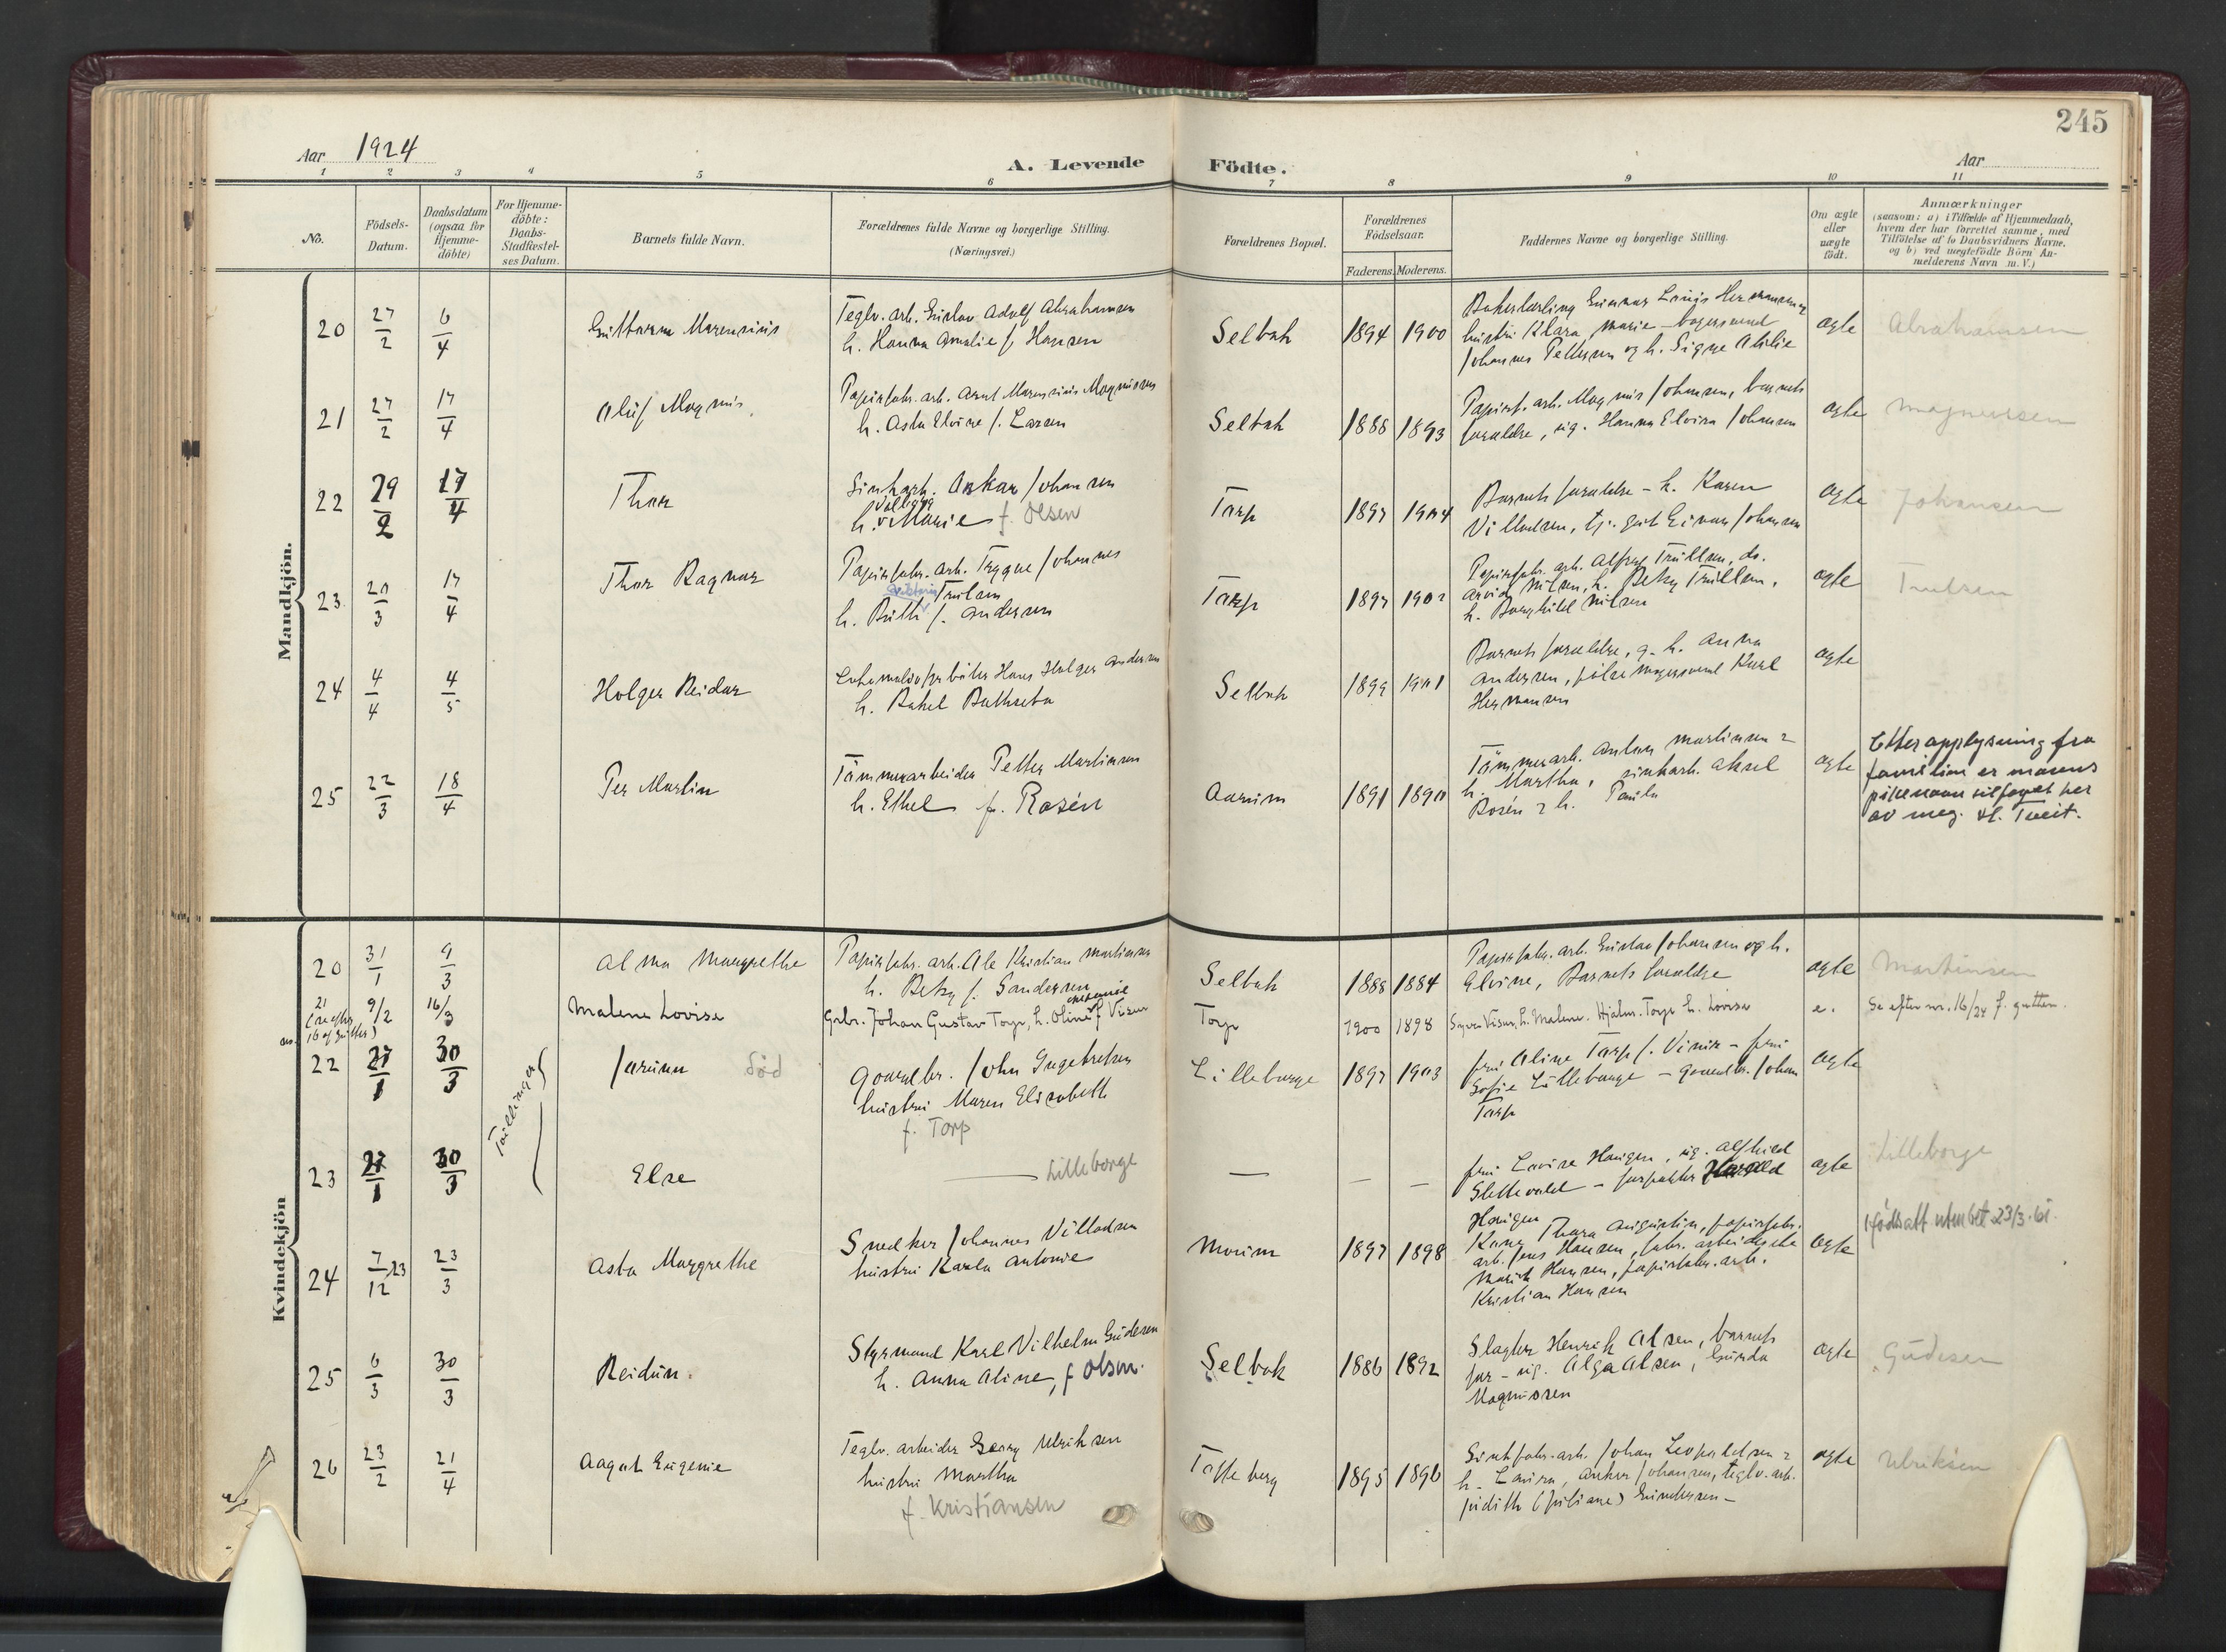 245
Aar 1924
A. Levende Födte.
Aar
1 2 3 4 5 6 7 8 9 10 11
No.
Födsels-
Datum.
Daabsdatum
(ogsaa for
Hjemme-
döbte)
For Hjemme-
döbte:
Daabs-
Stadfæstel-
ses Datum.
Barnets fulde Navn.
Forældrenes fulde Navne og borgerlige Stilling.
(Næringsvei.)
Forældrenes Bopæl.
Forældrenes
Födselsaar.
Faderens. Moderens.
Faddernes Navne og borgerlige Stilling.
Om ægte
eller
uægte
födt.
Anmærkninger
(saasom: a) i Tilfælde af Hjemmedaab,
hvem der har forrettet samme, med
Tilföielse af to Daabsvidners Navne,
og b) ved uægtefödte Börn An-
melderens Navn m. V.)
Mandkjön.
20 27/2 6/4 Guttorm Marensius
Teglv. arb. Gustav Adolf Abrahamsen
h. Hanna Amalie f. Hansen
Selbak 1894 1900
Gunnar Louis Hermansen
hustru Klara Marie
Johannes Pettersen og h. Signe
ægte Abrahamsen
21 27/2 17/4 Oluf Magnus
Papirfabr. arb. Arnt Marensius Magnussen
h. Asta Elvine f. Larsen
Selbak 1888 1893
Papirf. arb. Magnus Johansen, barnets
foreldre, pig. Hanna Elvira Johansen
ægte Magnussen
22 29/2 17/4 Thor
Oskar Johansen
Valborg
h. Marie f. Olsen
Torp 1897 1904
Barnets foreldre - h. Karen
Villadsen, tj. gut Einar Johansen
ægte Johansen
23 20/3 17/4 Thor Ragnar
Papirfabr. arb. Trygve Johannes
Trulsen
h. Ruth f. Andersen
Torp 1897 1902
Papirfabr. arb. Alfred Trulsen, do.
Arvid Nilsen, h. Betzy Trulsen,
h. Borghild Nilsen
ægte Trulsen
24 4/4 4/5 Holger Reidar
Lokomotivfyrböter Hans Holger Andersen
h. Rakel Bathseba
Selbak 1899 1901
Barnets foreldre, g. h. Anna
Andersen, pölsemagersvend Karl
Hermansen
ægte
25 22/3 18/4 Per Martin
Tömmerarbeider Petter Martinsen
h. Ethel f. Rosén
Aarum 1891 1890
Tömmerarb. Anton Martinsen &
h. Martha, sinkarb. Aksel
Rosén & h. Paula
ægte
Etter opplysning fra
familien er morens
pikenavn tilføyet her
av meg. H. Tveit.
Kvindekjön
20 31/1 9/3 Alma Margrethe
Papirfabr. arb. Ole Kristian Martinsen
h. Betzy f. Sandersen
Selbak 1888 1884
Papirfabr. arb. Gustav Johansen og h.
Elvine, Barnets foreldre
ægte Martinsen
21
(se efter
16 af gutter)
9/2 16/3 Malene Lovise
Grbr. Johan Gustav Torp, h. Oline f. Visur
Torp 1900 1898
h. Malene. Hjalm. Torp h. Lovise
e. Se efter nr. 16/24 f. gutter.
22 27/1 30/3 Jorunn död
Gaardbr. John Ingebretsen
hustru Maren Elisabeth
f. Torp
Tvillinger
Lilleborge 1897 1903
fru Oline Torp f. - fru
Sofie Lilleborge - gaardbr. Johan
Torp
ægte
23 27/1 30/3 Else
Lilleborge
— — —
fru Lovise Haugen, pig. Alfhild
Slettevold - Harald
Haugen
ægte Lilleborge
24 7/12 23 23/3 Asta Margrethe
Snedker Johannes Villadsen
hustru Karla Antonie
Morum 1897 1898
Kone Thora Augustin, papirfabr.
arb. Jens Hansen, fabr. arbeiderske
Marie Hansen, papirfabr. arb.
Kristian Hansen
ægte
Fødselsatt utmeldt 23/3-61.
25 6/3 30/3 Reidun.
Styrmand Karl Vilhelm Gudesen
h. Anna Oline, f Olsen.
Selbak 1886 1892
Slagter Henrik Olsen, barnets
far - pig. Olga Olsen, Gunda
Magnussen
ægte Gudesen
26 23/2 21/4 Aagot Eugenie
Teglv. arbeider Georg Ulriksen
hustru Martha
f. Kristiansen
Tofteberg 1895 1896
Sinkfabr. arb. Johan Leopoldsen &
h. Lovisa, Anker Johansen, teglv. arb.
Judith (Juliane) Gundersen -
ægte Ulriksen